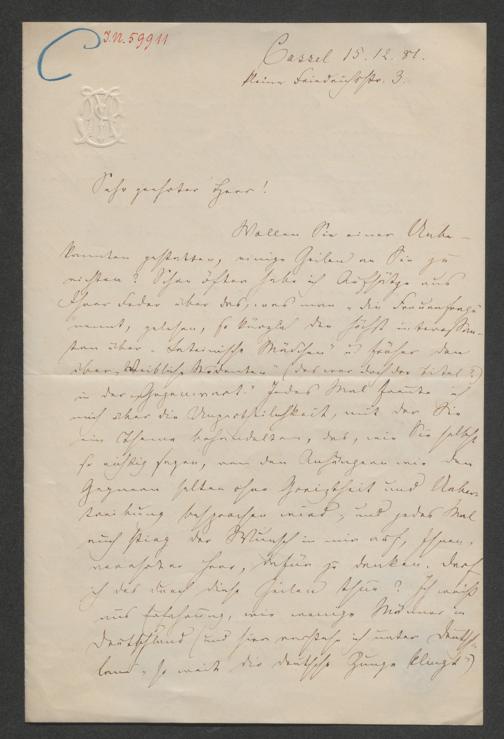 J.N. 59911
Cassel 15.12.81.
kleine Friedrichstr. 3.
Sehr geehrter Herr!
Wollen Sie einer Unbe-
kannten gestatten, einige Zeilen an Sie zu
richten? Schon öfter habe ich Aufsätze aus
Ihrer Feder über das, was man „die Frauenfrage"
nennt, gelesen, so kürzlich den höchst interessan-
ten über „lateinische Mädchen" u. früher den
über „Weibliche Studenten" (das war doch der Titel?)
in der „Gegenwart." Jedes Mal freute ich
mich über die Unpartheilichkeit, mit der Sie
ein Thema behandelten, das, wie Sie selbst
so richtig sagen, von den Anhängern wie den
Gegnern selten ohne Gereiztheit und Ueber-
treibung besprochen wird, und jedes Mal
auch stieg der Wunsch in mir auf, Ihnen,
verehrter Herr, dafür zu danken. Darf
ich das durch diese Zeilen thun? Ich weiß
aus Erfahrung, wie wenige Männer in
Deutschland (und hier verstehe ich unter Deutsch-
land „so weit die deutsche Zunge klingt")